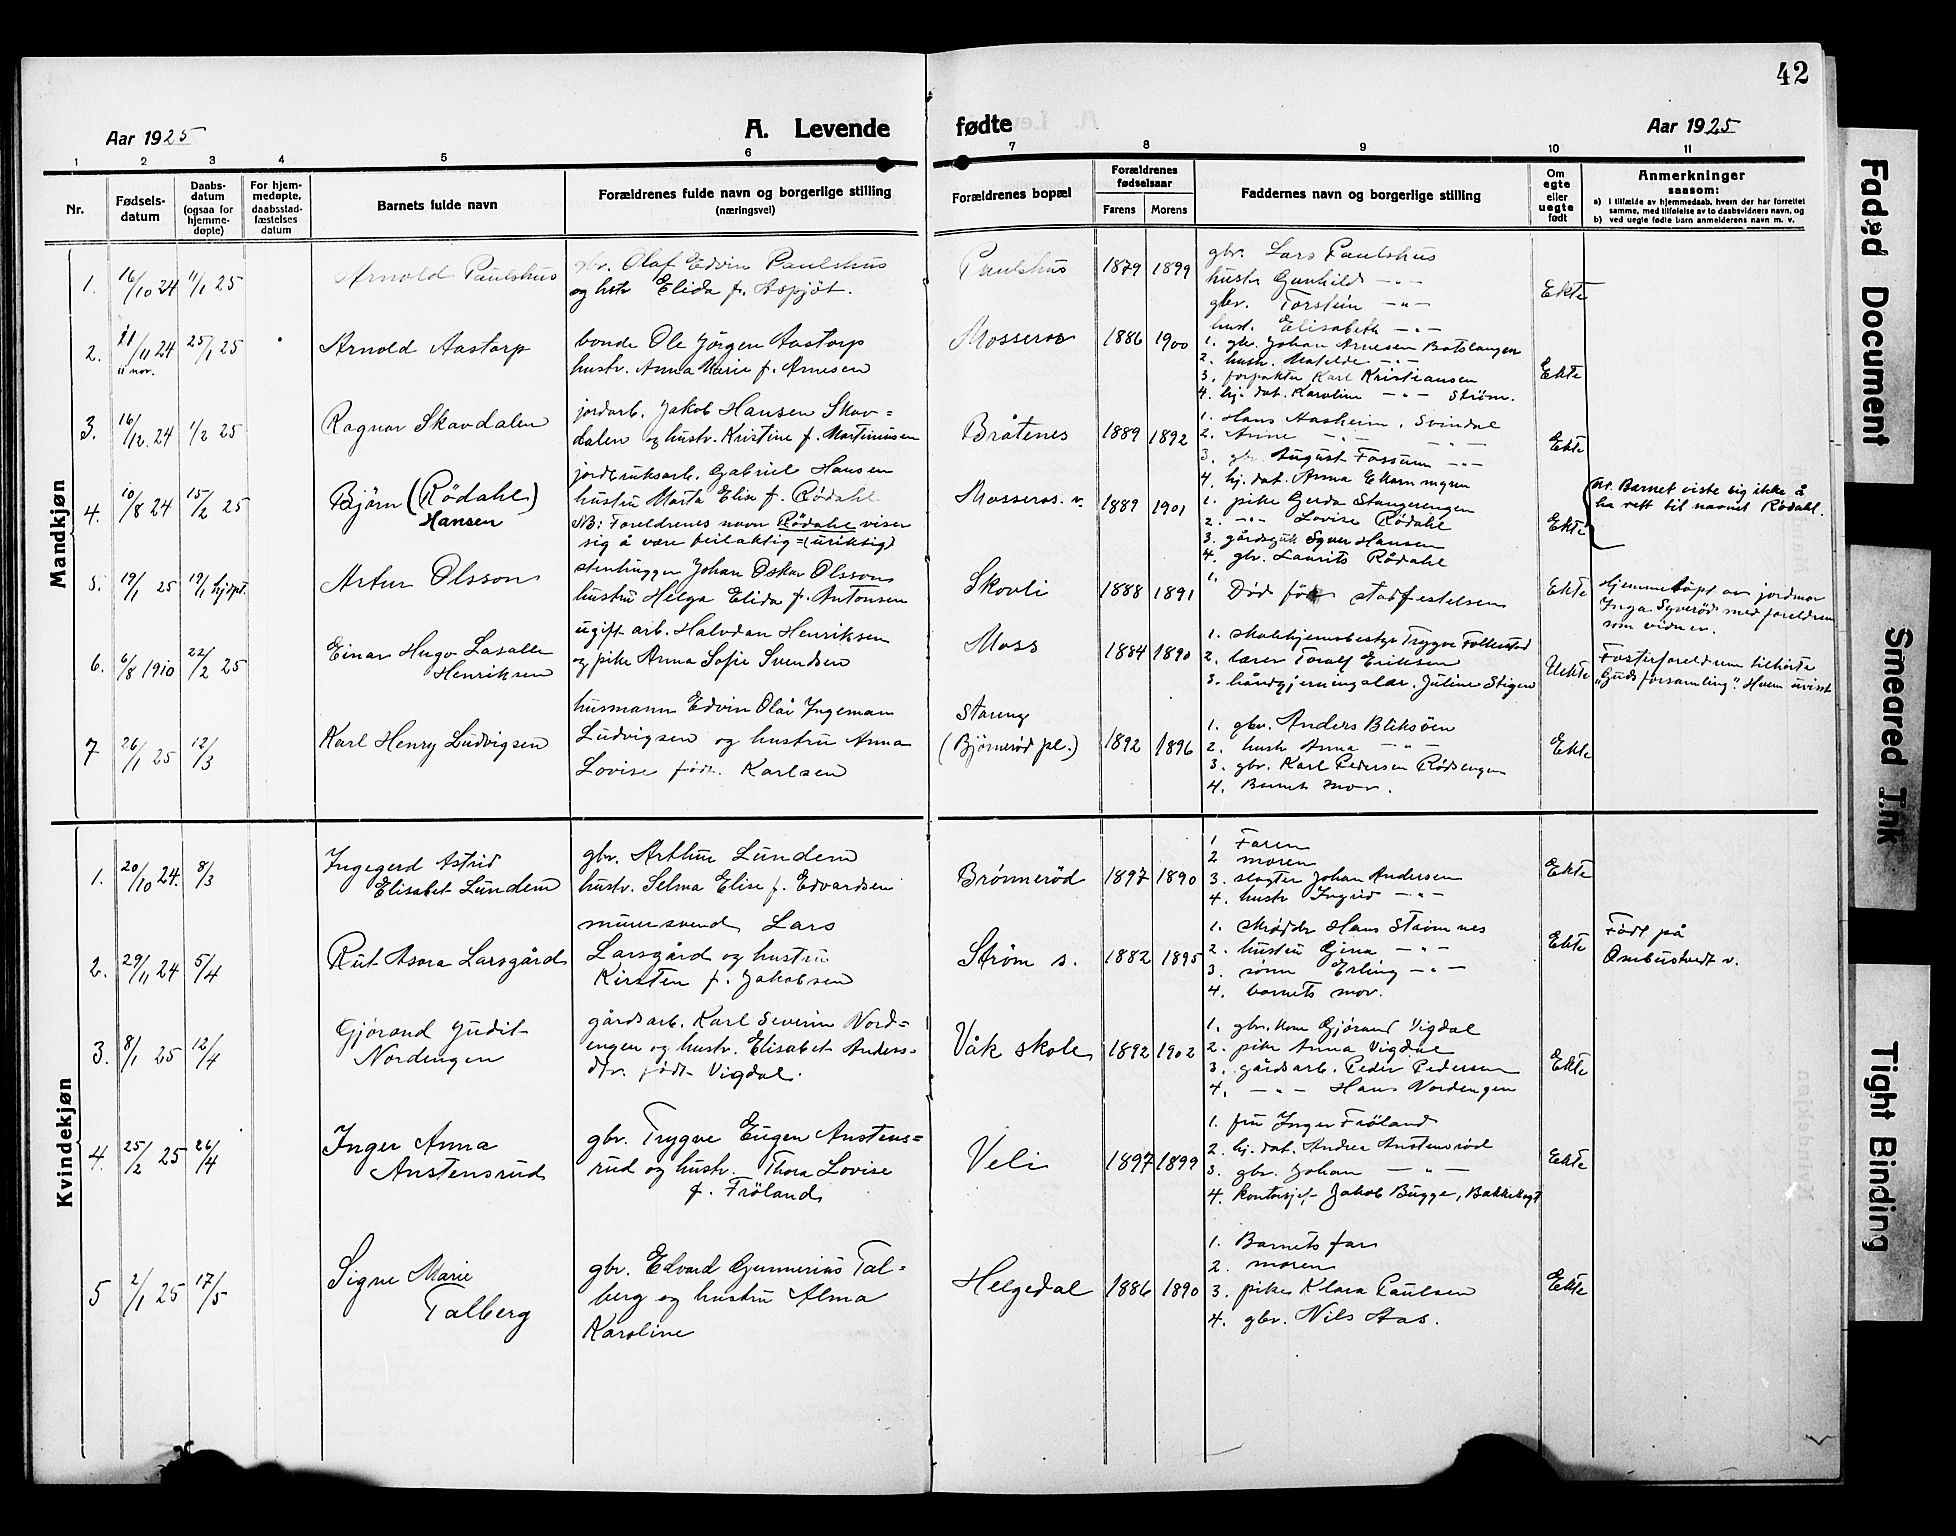 42
Aar 1925
A. Levende
fødte
Aar 1925
1 2 3 4 5 6 7 8 9 10 11
Nr.
Fødsels-
datum
Daabs-
datum
(ogsaa for
hjemme-
døpte)
For hjem-
medøpte,
daabsstad-
fæstelses
datum
Barnets fulde navn
Forældrenes fulde navn og borgerlige stilling
(næringsvei)
Forældrenes bopæl
Forældrenes
fødselsaar
Farens Morens
Faddernes navn og borgerlige stilling
Om
egte
eller
uegte
født
Anmerkninger
saasom:
a) i tilfælde av hjemmedaab, hvem der har forrettet
samme, med tilføielse av to daabsvidners navn, og
b) ved uegte fødte barn anmelderens navn m. v.
Mandkjøn
1. 16/10 24 11/1 25
Arnold Paulshus
gbr. Olaf Edvin Paulshus
og hstr Elida f. Aspjöt.
Paulshus
1879 1899
gbr. Lars Paulshus
hustr Gunhild -"-
gbr. Torstein -"-
hust. Elisabeth -"-
Ekte
2. 11/11 24 25/1 25
11 nov.
Arnold Aastorp
bonde Ole Jörgen Aastorp
hustr. Anna Marie f. Arnesen
Mosseros
1886 1900
1. gbr. Johan Arnesen Botslangen
2. hustr. Matilde -"-
3. forpakter Karl Kristiansen
4. hj. dat. Karoline -"- Strøm.
Ekte
3. 16/12. 24 1/2 25
Ragnar Skavdalen
jordarb. Jakob Hansen Skav=
dalen og hustr. Kristine f. Martinusen
Bråtenes
1889 1892
1. Hans Aasheim, Svindal
2. Anne -"- -"-
3. gbr August Fossum -"-
4. hj. dat. Anna Ekornmyren
Ekte
4. 10/8 24 15/2 25
Björn (Rödahl)
Hansen
jordbruksarb. Gabriel Hansen
hustru Marta Elise f. Rödahl
NB: Foreldrenes navn Rödahl viser
sig å være feilaktig = (uriktig)
Mosseros. v.
1889 1901
1. pike Gerda Stangerengen
2. -"- Lovise Rødahl
3. gårdsgutt Syver Hansen
4. gbr. Laurits Rådahl
Ekte
Barnet viste sig ikke å
ha rett til navnet Rødahl.
5. 19/1 25 19/1 hjdpt.
Artur Olsson
stenhugger Johan Oskar Olsson
hustru Helga Elida f. Antonsen
Skovli
1888 1891
1.
Död för stadfestelsen
Ekte
Hjemmedöpt av jordmor
Inga Syveröd med foreldrene
som vidner.
6. 6/8 1910 22/2 25
Einar Hugo Lasalle
Henriksen
ugift arb. Halvdan Henriksen
og pike Anna Sofie Svendsen
Moss
1884 1890
1. skolehjemsbestyr Trygve Folkestad
2. lærer Toralf Eriksen
3. håndgjerningslær. Juline Stigen
Uekte
Fosterforeldrene tilhörte
"Guds forsamling". Hvem uvisst
7 26/1 25 12/3
Karl Henry Ludvigsen
husmann Edvin Olai Ingeman
Ludvigsen og hustru Anna
Lovise född. Karlsen
Stareng
(Bjørnerød pl.)
1892 1896
1. gbr. Anders Bliksöen
2. hustr Anna -"-
3. gbr. Karl Pedersen Rödsengen
4. Barnets mor.
Ekte
Kvindekjøn
1. 20/10 24. 8/3
Ingegerd Astrid
Elisabet Lundem
gbr. Arthur Lundem
hustr. Selma Elise f. Edvardsen
Brønnerød
1897 1890
1 Faren
2 moren
3. slagter Johan Andersen
4. hustr Ingrid -"-
Ekte
2. 29/11 24 5/4
Rut Asora Larsgård
murersvend Lars
Larsgård og hustru
Kirsten f. Jakobsen
Strøm s.
1882 1895
1. Skrædder Hans Strömnes
2. hustru Gina -"-
3. sönn Erling -"-
4. barnets mor.
Ekte
Födt på
Ombustvedt v.
3. 8/1 25 12/4
Gjörand Judit
Nordengen
gårdsarb. Karl Severin Nord=
engen og hustr. Elisabet Anders-
dtr. födt Vigdal.
Våk skole
1892 1902
1. gbr. kone Gjörand Vigdal
2. pike Anna Vigdal
3. gårdsarb. Peder Pedersen
4. -"- Hans Nordengen
Ekte
4. 25/2 25 26/4
Inger Anna
Anstensrud
gbr. Trygve Eugen Anstens=
rud og hustr. Thora Lovise
f. Fröland
Veli
1897 1899
1. fru Inger Fröland
2. hj. dat. Andrea Anstensröd
3. gbr. Johan -"-
4. kontorsjef Jakob Bugge, Bakkebygt
Ekte
5 2/1 25 17/5
Signe Marie
Talberg
gbr. Edvard Gunnerius Tal=
berg og hustru Alma
Karoline
Helgedal
1886 1890
1. Barnets far
2. moren
3. pike Klara Paulsen
4. gbr. Nils Aas.
Ekte
Faded Document
Smeared Ink
Tight Binding